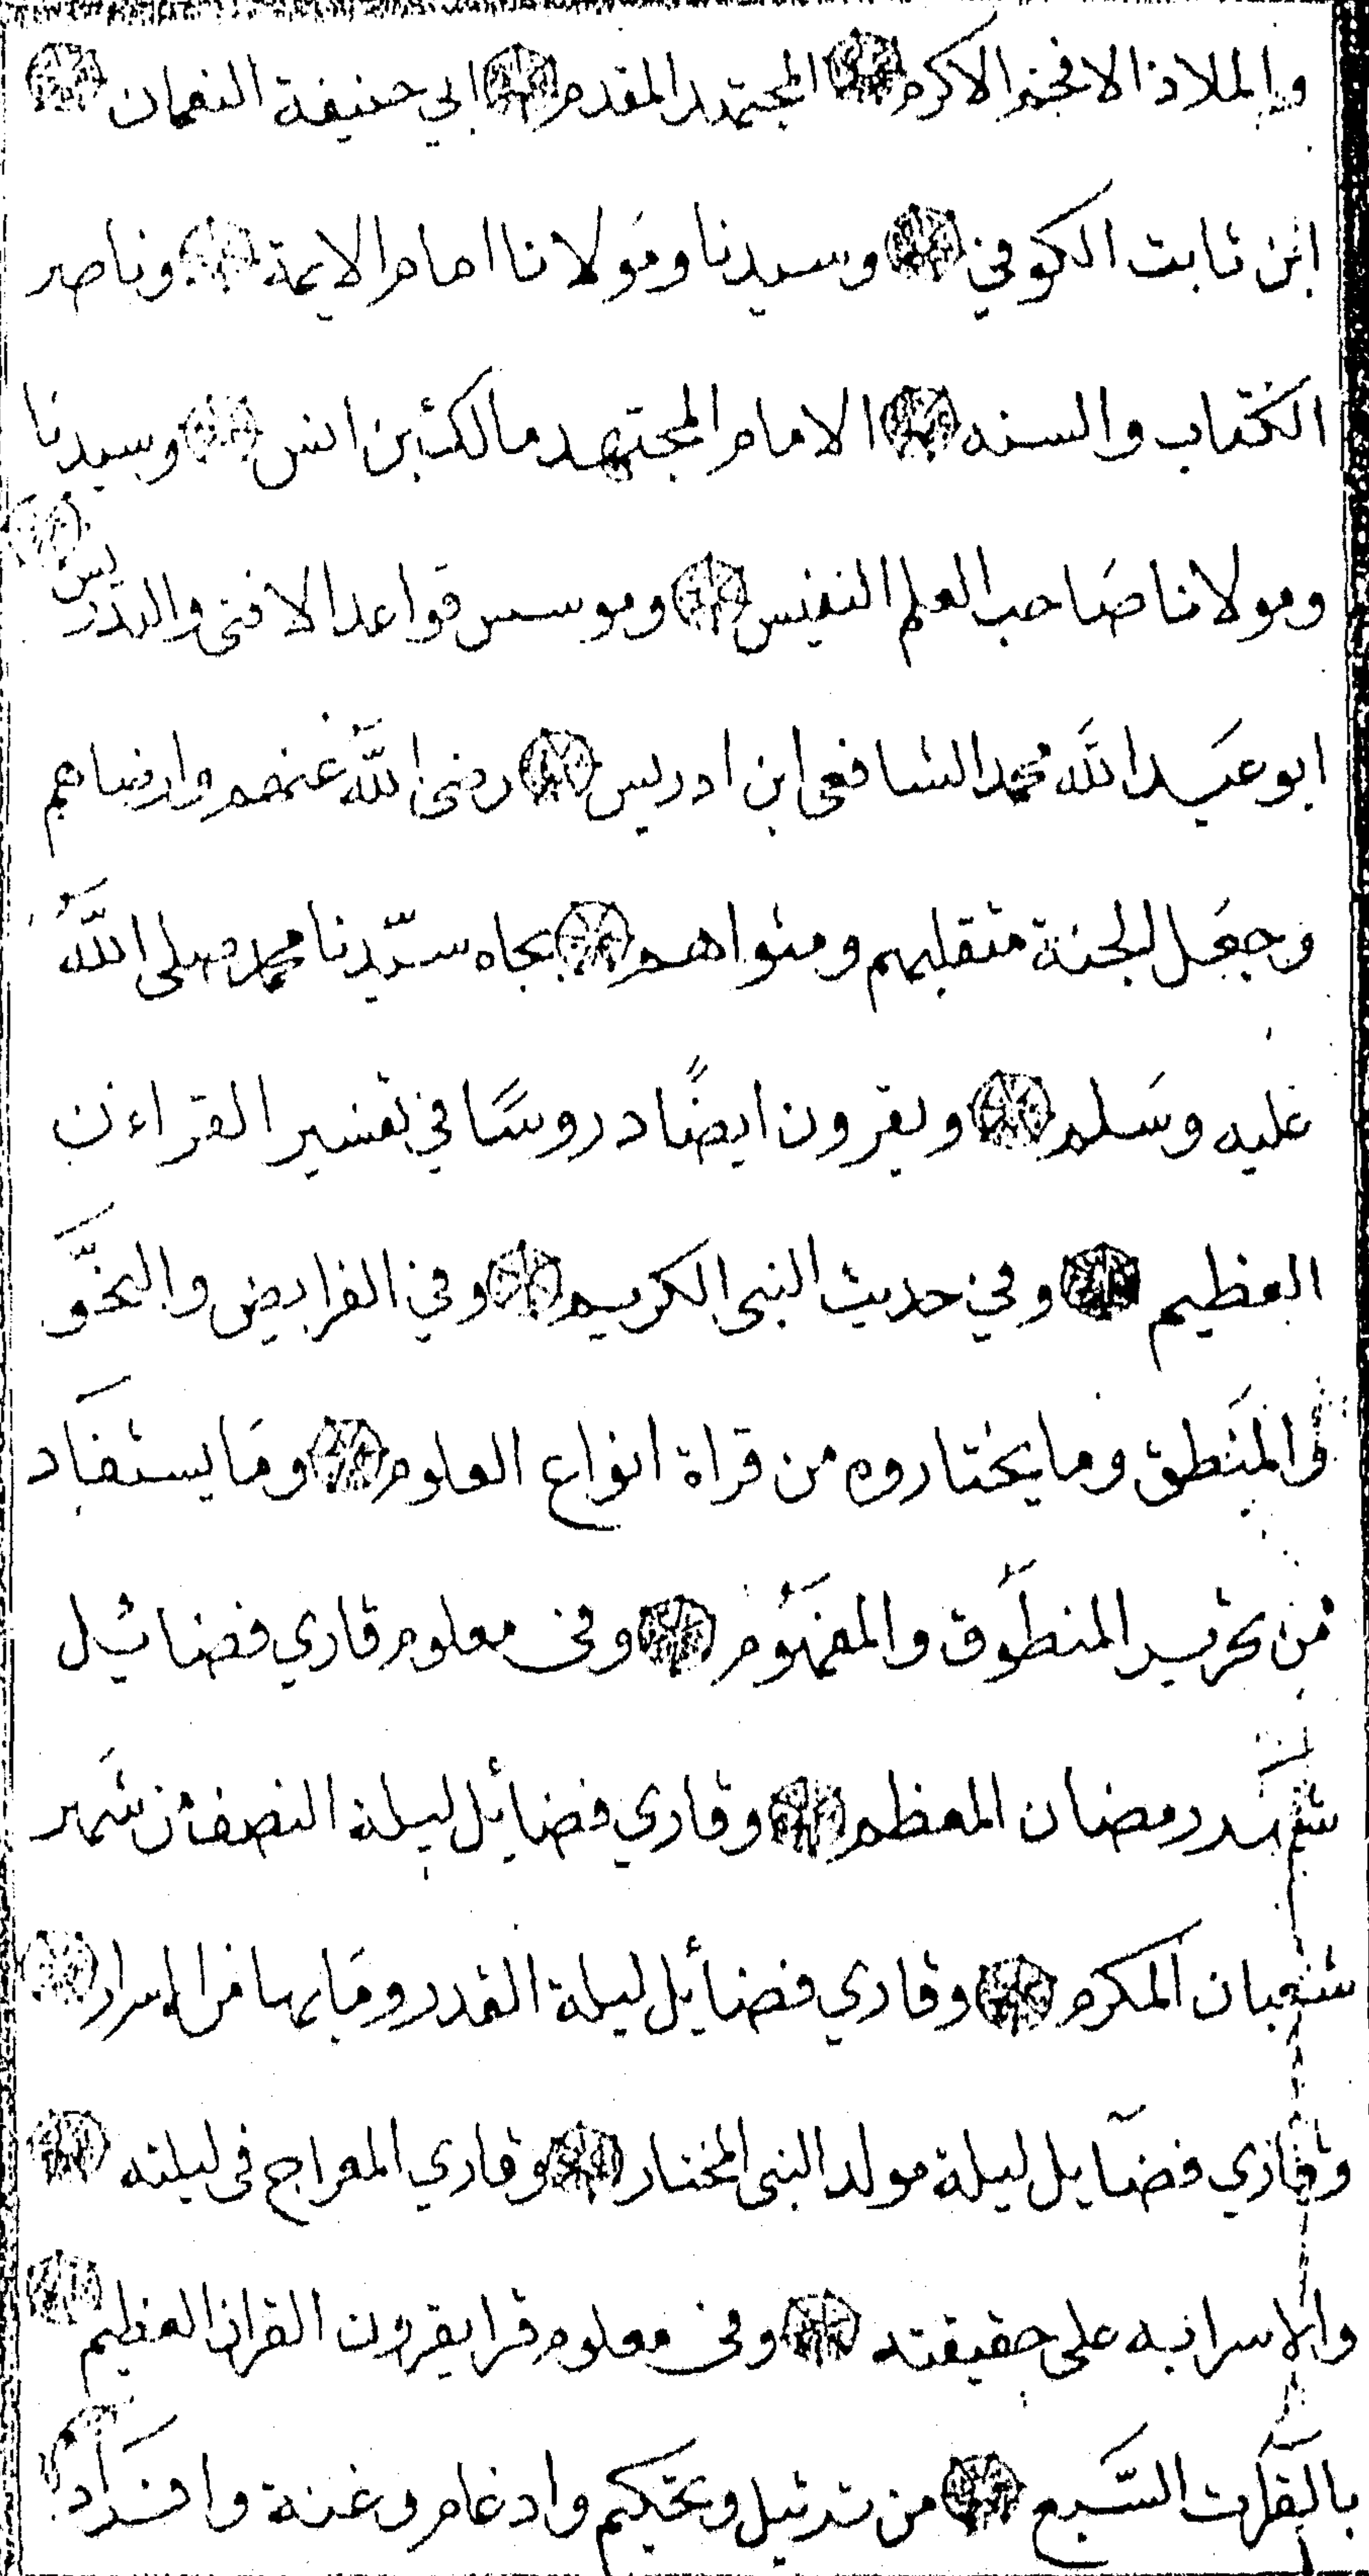 والملاذ الافخم الاكرم المجتهد المقدم ابي حنيفة النعمان
ابن ثابت الكوفي وسيدنا ومولانا امام الايمة وناصر
الكتاب والسنه الامام المجتهد مالك بن انس وسيدنا
ومولانا صاحب العلم النفيس وموسس قواعد الافتى والتدريس
ابو عبد الله محمد الشافعى ابن ادريس رضى الله عنهم وارضاهم
وجعل الجنة متقلبهم ومثواهم بجاه سيدنا محمد صلى الله
عليه وسلم ويقرون ايضًا دروسًا في تفسير القراءن
العظيم وفي حديث النبى الكريم وفي الفرايض والنحو
والمنطق وما يختاروه من قراة انواع العلوم وما يستفاد
من تحرير المنطوق والمفهوم وفى معلوم قاري فضايل
شهر رمضان المعظم وقاري فضايل ليلة النصف من شهر
شعبان المكرم وقاري فضايل ليلة القدر وما بها من الاسرار
وقاري فضايل ليلة مولد النبى المختار وقاري المعراج فى ليلته
والاسرا به على حقيقته وفى معلوم قرا يقرون القران العظيم
بالقرآت السبع من ترتيل وتحكيم وادغام وغنة وافراد